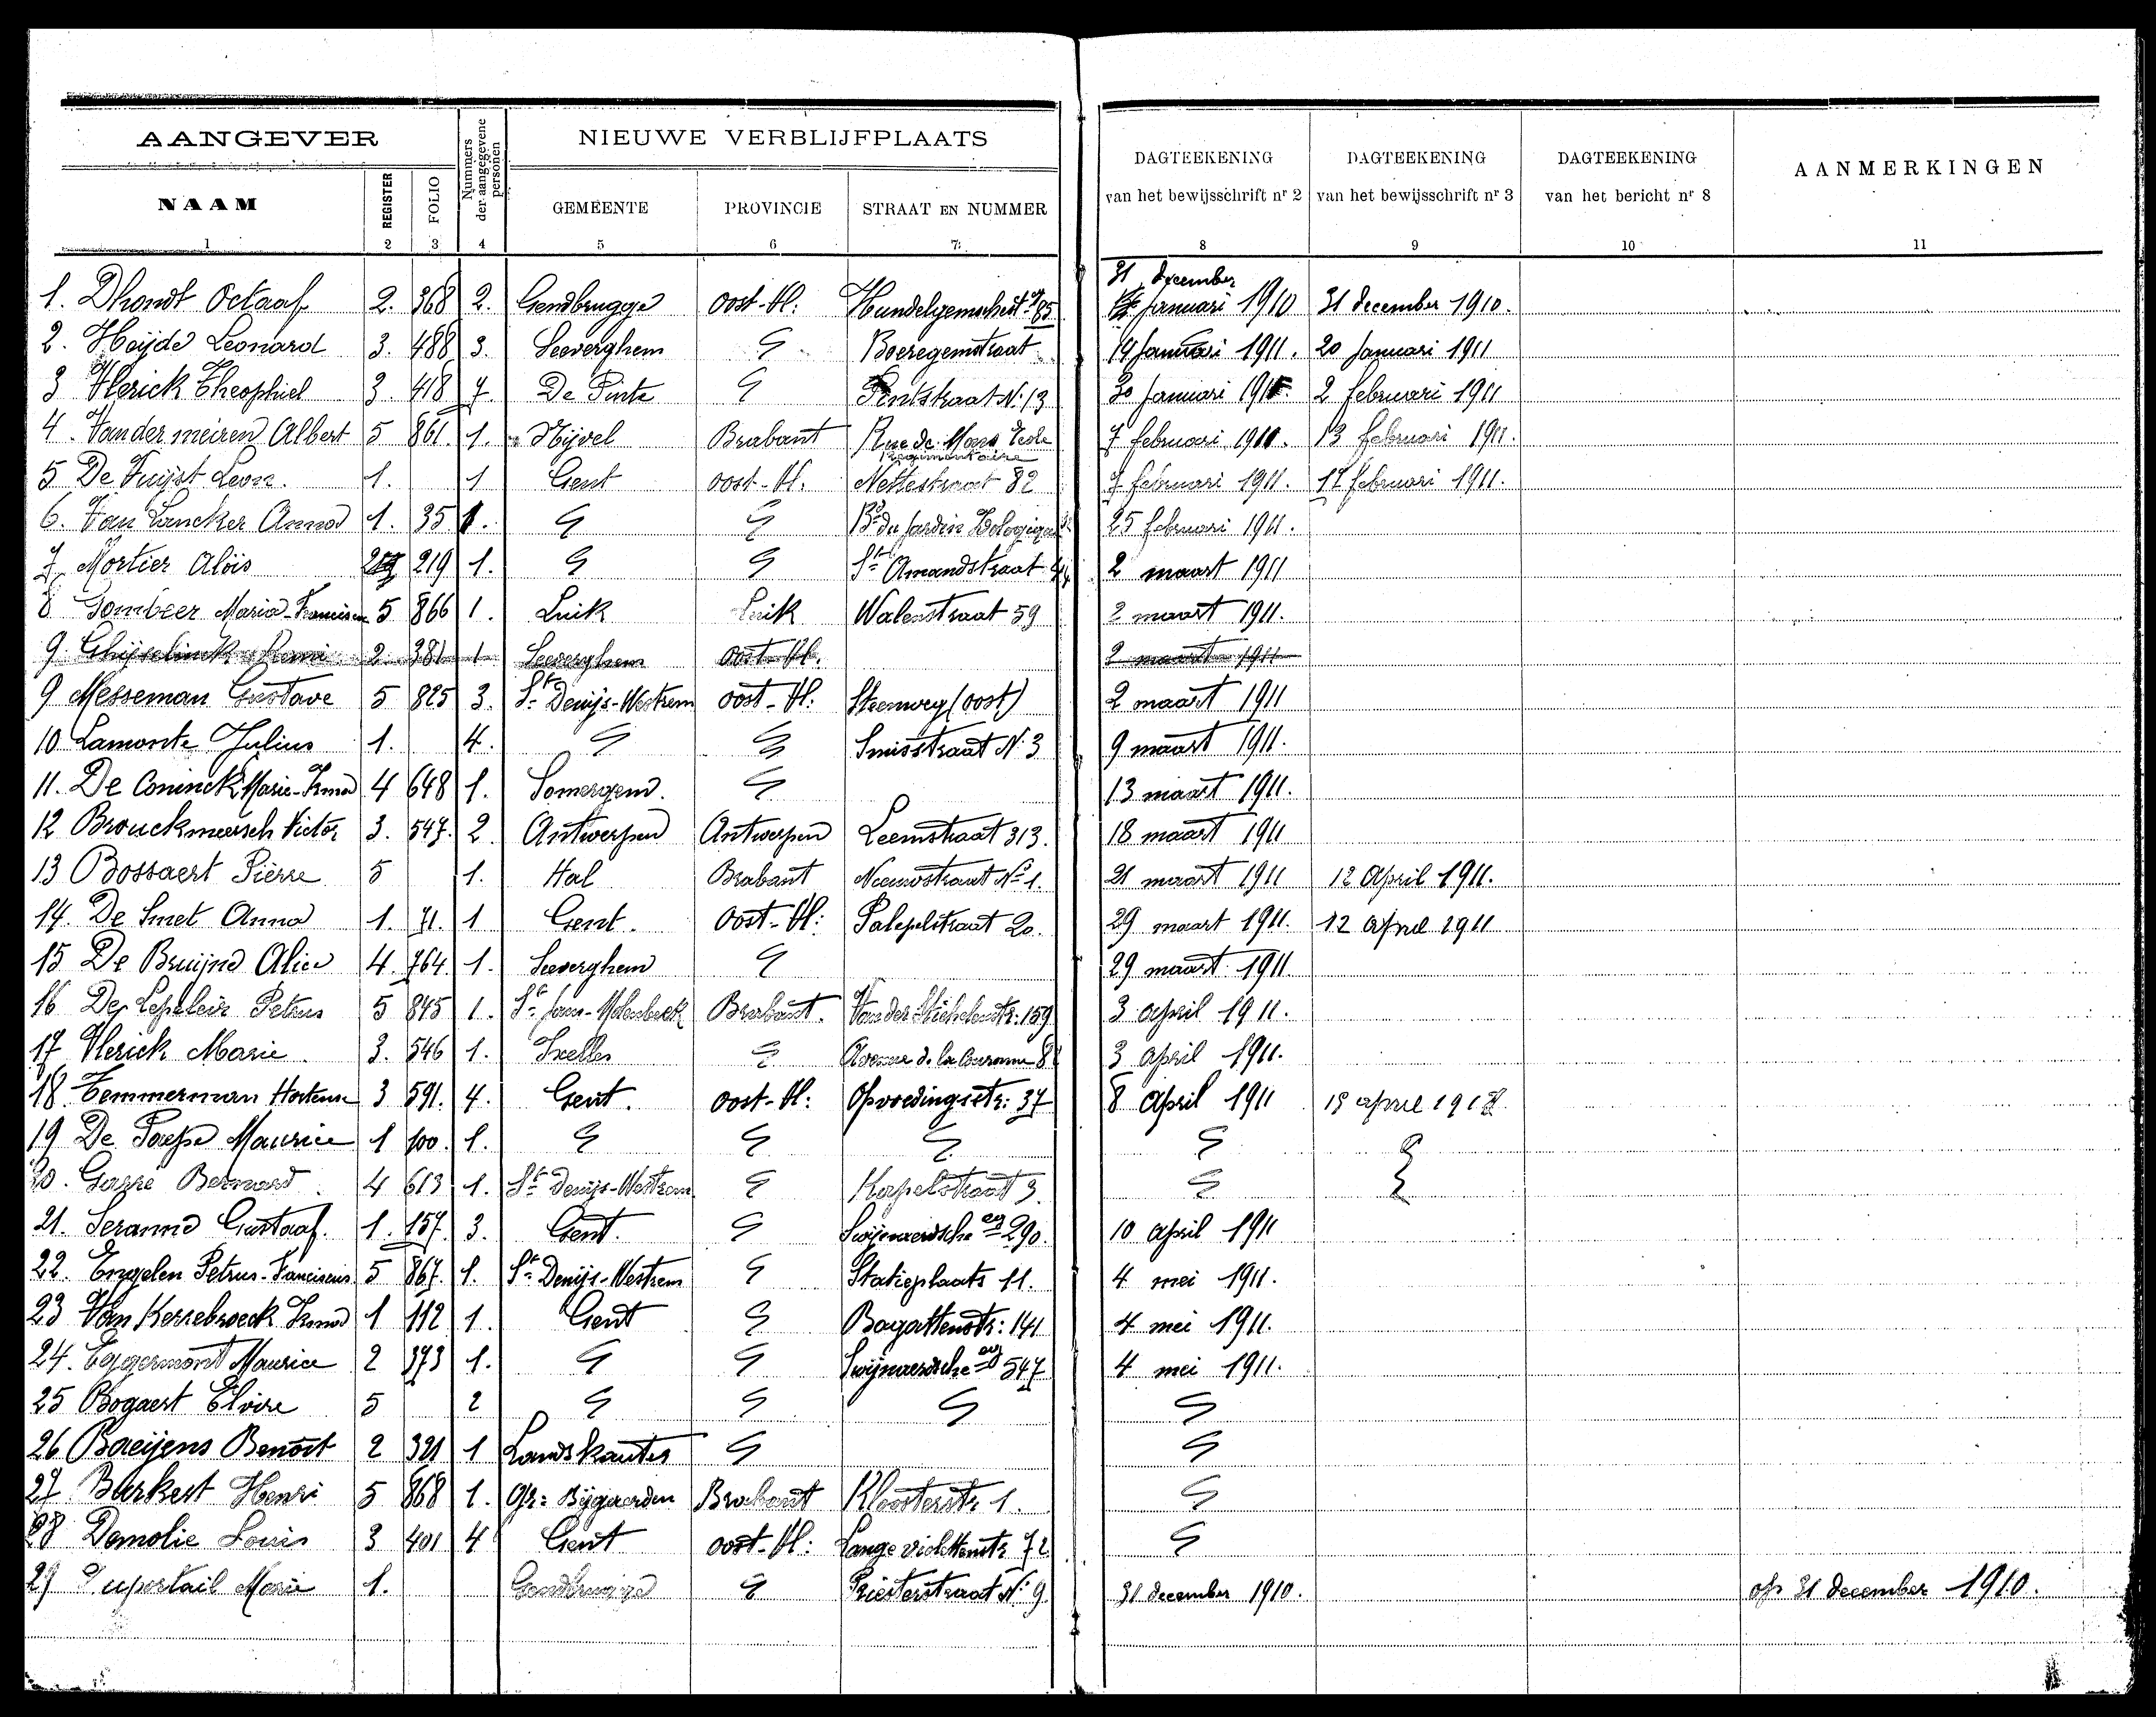 AANGEVER
Nummers der aangegevene personen
NIEUWE VERBLIJFPLAATS
DAGTEEKENING van het bewijsschrift nr 2
DAGTEEKENING van het bewijsschrift nr 3
DAGTEEKENING van het bericht nr 8
AANMERKINGEN
NAAM REGISTER FOLIO GEMEENTE PROVINCIE STRAAT EN NUMMER
1 2 3 4 5 6 7 8 9 10 11
31 december
1. Dhondt Octaaf 2. 368 2. Gendbrugge Oost-Vl: 85 Januari 1910 31 december 1910.
2. Heijde Leonard 3. 488 3 Seeverghem Boeregemstraat 19 Januari 1911. 20 Januari 1911
3 Vlerick Theophiel 3. 418 7. De Pinte Pontstraat N. 13 30 Januari 2 februari 1911
4. Vandermeiren Albert 5 861. 1. Nijvel Brabant Rue de Mons Ecole Regimentaire 7 februari 13 februari 1911.
5 De Vuijst Leon. 1. 1 Gent Oost-Vl. 82 7 februari 1911. 17 februari 1911.
6. Van Lancker Anna 1. 35 1. Bd du Jardin Zoologique 25 februari 1911.
7 Mortier Aloïs 219 1. St Amandstraat 2 maart 1911
8 Gombeer Maria-Francisca 5 866 1. Luik Luik Walenstraat 59 2 maart 1911.
9. Ghijselinck Remi 2 381 1 Seeverghem Oost-Vl. 2 maart 1911
9 Messeman Gustave 5 825 3. St Denijs-Westrem Oost-Vl: Steenweg (oost) 2 maart 1911
10 Lamonte Julius 1. 4. Smisstraat N. 3 9 maart 1911.
11. De Coninck Marie-Irma 4 648 1. Somergem. 13 maart 1911.
12 Brouckmeersch Victor 3. 547. 2. Antwerpen Antwerpen Leemstraat 313. 18 maart 1911
13 Bossaert Pièrre 5 1. Hal Brabant Nieuwstraat No 1. 21 maart 1911 12 April 1911.
14. De Smet Anna 1. 71. 1 Gent. Oost-Vl: 20. 29 maart 1911. 12 April 1911
15 De Bruijne Alice 4. 764 1. Seeverghem 29 maart 1911.
16 De Lepeleir Petrus 5 845 1. St Jans-Molenbeek Brabant. 159 3 april 1911.
17 Vlerick Marie. 3. 546 1. Ixelles Avenue de la Couronne 3 April 1911.
18 Temmerman Hortense 3 591. 4. Gent. Oost-Vl: Opvoedingstr: 37 8 April 1911 april
19 De Paepe Maurice 1 100. 1.
20. Bernard. 4 613 1. St Denijs-Westrem Kapelstraat 3.
21. Seranne Gustaaf. 1. 157. 3. Gent. Swijnaerdsche 290. 10 April 1911
22. Engelen Petrus-Franciscus 5 867. 1. St Denijs-Westrem Statieplaats 11. 4 mei 1911.
23 Van Kerrebroeck Irma 1 112 1. Gent Bagattenstr: 141 4 mei 1911.
24. Eggermont Maurice 2 373 1. Swijnaerdsche 547 4 mei 1911.
25 Bogaert Elvire 5 2
26 Baeijens Benoit 2 321 1 Landskouter
27 Henri 5 868 1. Gr: Bijgaarden Brabant Kloosterstr 1.
28 Demolie Louis 3 401 4 Gent Oost-Vl: Lange violettenstr 72
29 Duportail Marie 1. Gendbrugge Priesterstraat N. 9. 31 december 1910. op 31 december 1910.